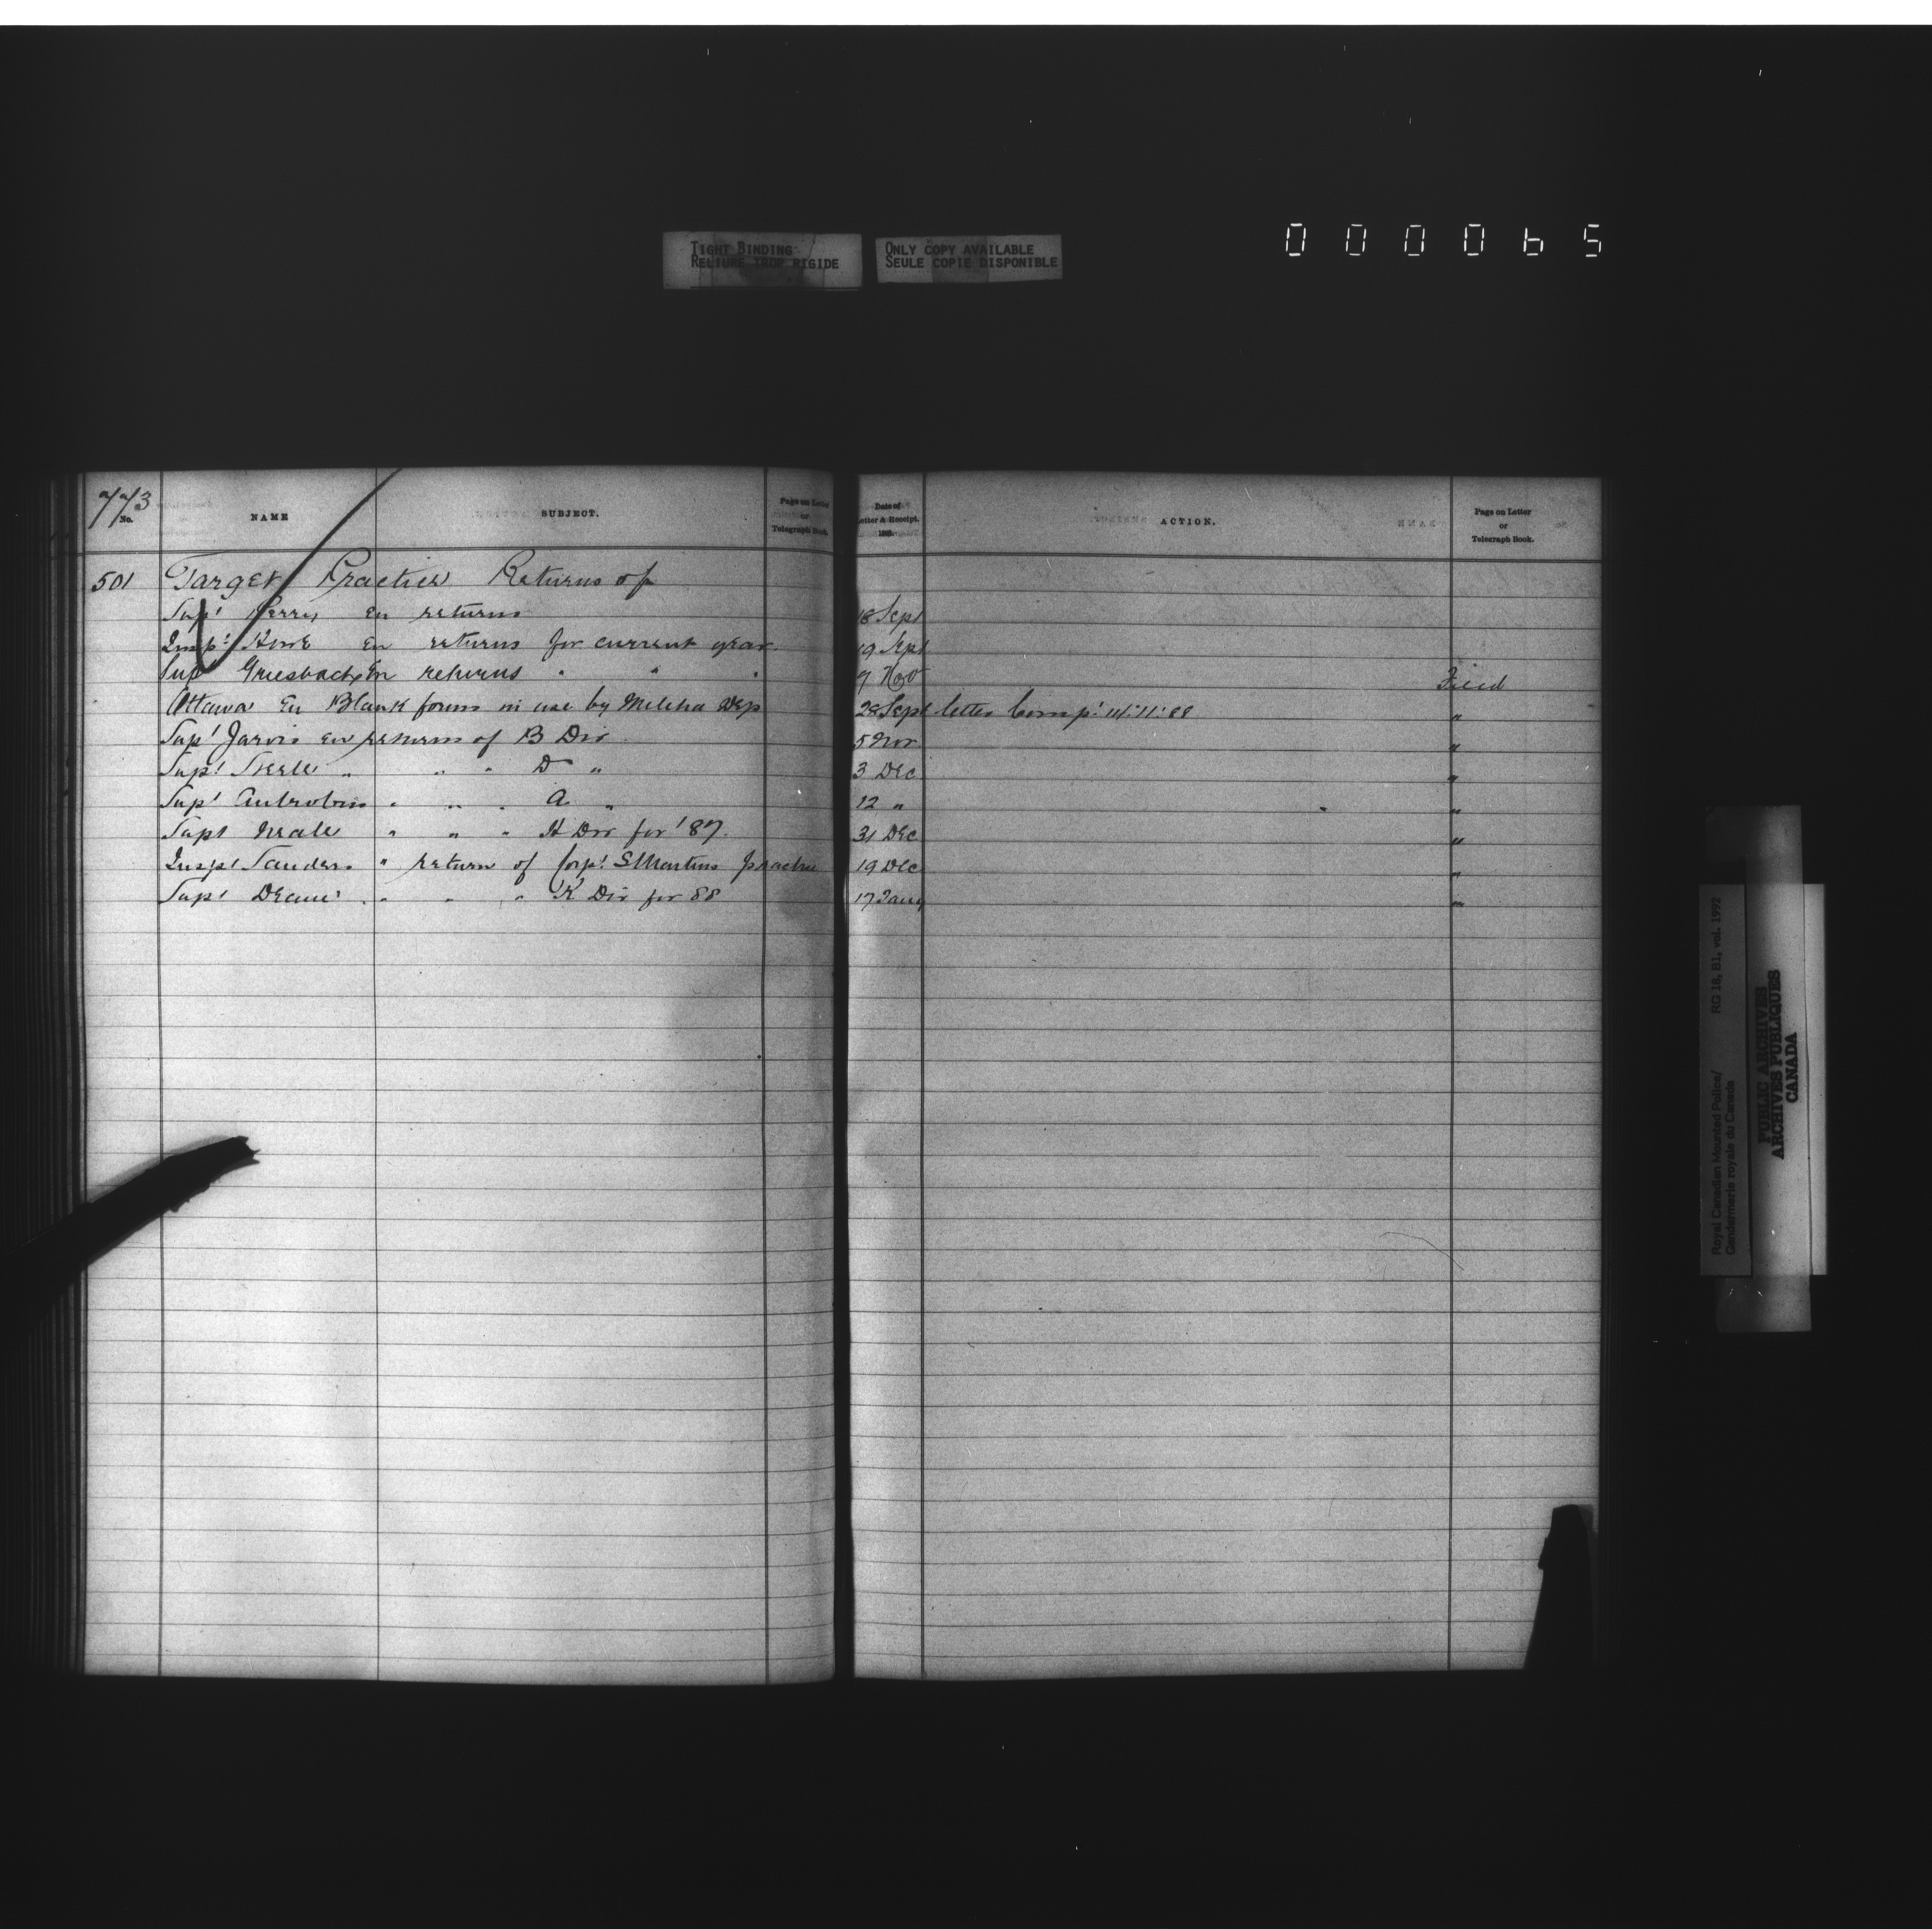 TIGHT BINDING
RELIURE TROP RIGIDE
ONLY COPY AVAILABLE
SEULE COPIE DISPONIBLE
000065
773
No.
NAME
SUBJECT.
Page on Letter
or
Telegraph Book.
Date of
Letter & Receipt.
188
ACTION.
Page on Letter
or
Telegraph Book.
501 Target Practice Returns of
Supt Perry En returns 18 Sept
Inspr Howe En returns for current year 19 Sept
Supt Griesbach En returns " " " 9 Nov Filed
Ottawa En Blank forms in use by Militia Dep 28 Sept letter Compt 14:11:88 "
Supt Jarvis en returns of B Div 5 Nov "
Supt Steele " " " D " 3 Dec "
Supt Antrobus " " " A " 12 " "
Supt Neale " " " H Div for '87. 31 Dec "
Inspt Sanders " return of Corpl St Martins practice 19 Dec "
Supt Deane " " " K Div for 88 17 Jany "
Royal Canadian Mounted Police/ RG 18, B1, vol. 1992
Gendarmerie royale du Canada
PUBLIC ARCHIVES
ARCHIVES PUBLIQUES
CANADA